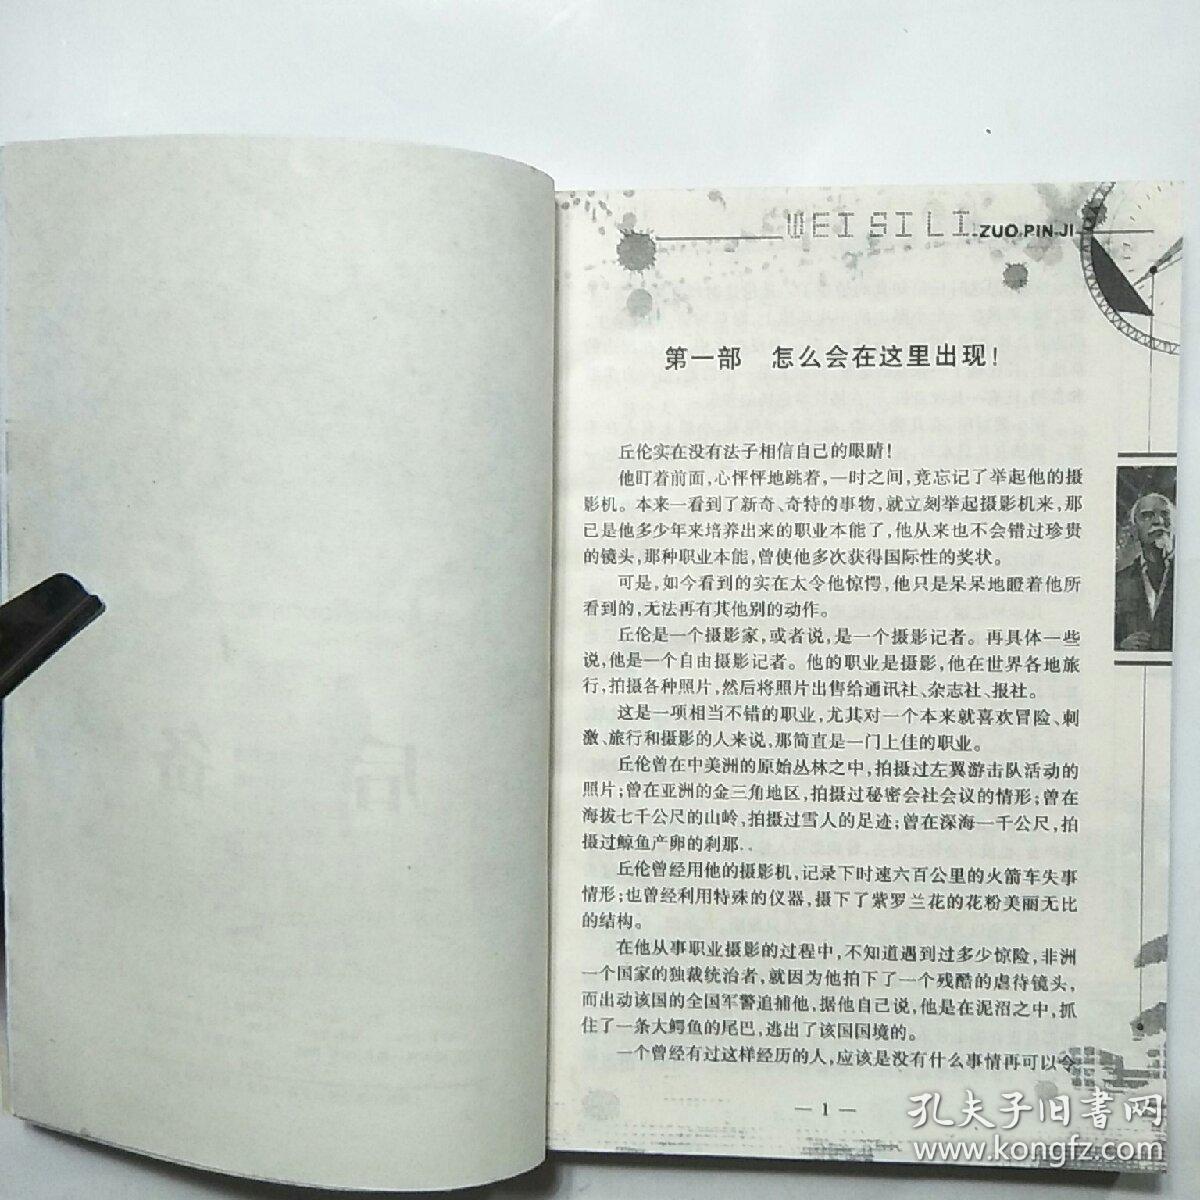 WEI SI LI ZUO PIN JI
第一部 怎么会在这里出现！
丘伦实在没有法子相信自己的眼睛！
他盯着前面，心怦怦地跳着，一时之间，竟忘记了举起他的摄
影机。本来一看到了新奇、奇特的事物，就立刻举起摄影机来，那
已是他多少年来培养出来的职业本能了，他从来也不会错过珍贵
的镜头，那种职业本能，曾使他多次获得国际性的奖状。
可是，如今看到的实在太令他惊愕，他只是呆呆地瞪着他所
看到的，无法再有其他别的动作。
丘伦是一个摄影家，或者说，是一个摄影记者。再具体一些
说，他是一个自由摄影记者。他的职业是摄影，他在世界各地旅
行，拍摄各种照片，然后将照片出售给通讯社、杂志社、报社。
这是一项相当不错的职业，尤其对一个本来就喜欢冒险、刺
激、旅行和摄影的人来说，那简直是一门上佳的职业。
丘伦曾在中美洲的原始丛林之中，拍摄过左翼游击队活动的
照片；曾在亚洲的金三角地区，拍摄过秘密会社会议的情形；曾在
海拔七千公尺的山岭，拍摄过雪人的足迹；曾在深海一千公尺，拍
摄过鲸鱼产卵的刹那..
丘伦曾经用他的摄影机，记录下时速六百公里的火箭车失事
情形；也曾经利用特殊的仪器，摄下了紫罗兰花的花粉美丽无比
的结构。
在他从事职业摄影的过程中，不知道遇到过多少惊险，非洲
一个国家的独裁统治者，就因为他拍下了一个残酷的虐待镜头，
而出动该国的全国军警追捕他，据他自己说，他是在泥沼之中，抓
住了一条大鳄鱼的尾巴，逃出了该国国境的。
一个曾经有过这样经历的人，应该是没有什么事情再可以令
— 1 —
孔夫子旧书网
www.kongfz.com